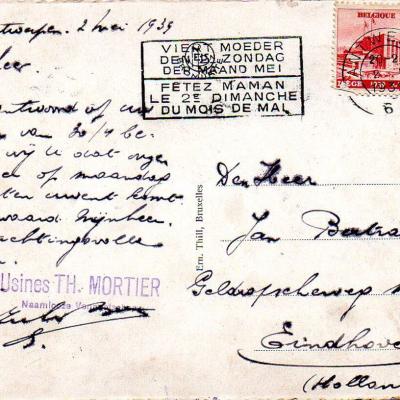 twerpen, 2 mei 1939
heer.
ntwoord op uw
van 30/4 be
wij u dat onze
op maandag
komt
waard Mijnheer
achtingsvolle
Usines TH. MORTIER
Naamloze
VIERT MOEDER
DEN 2EN ZONDAG
DER MAAND MEI
FÊTEZ MAMAN
LE 2E DIMANCHE
DU MOIS DE MAI
BELGIQUE
ANTWE
1939
6
Ern. Thill, Bruxelles
Den Heer
Jan
Geldropscheweg
Eindhove
(Hollan